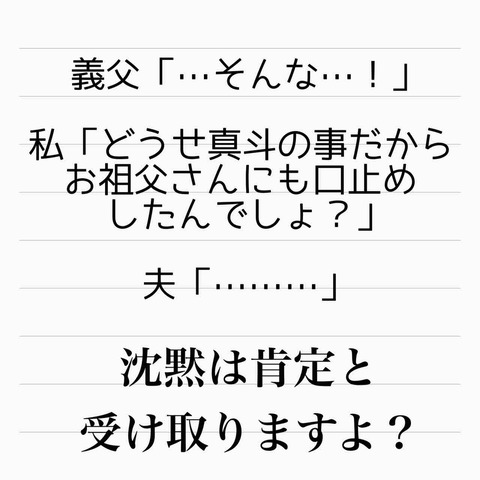 義父「…そんな…！」
私「どうせ真斗の事だから
お祖父さんにも口止め
したんでしょ？」
夫「………」
沈黙は肯定と
受け取りますよ？